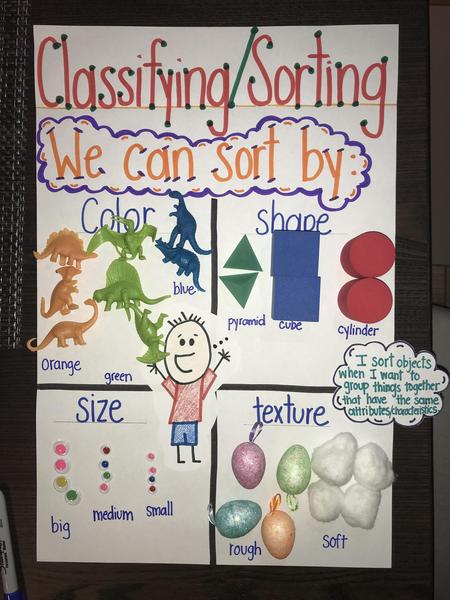 Classifying/Sorting
We can sort by:
Color
blue
Orange
green
shape
pyramid
cube
cylinder
I sort objects
when I want to
group things together
that have the same
attributes/characteristics
size
big
medium
small
texture
rough
soft